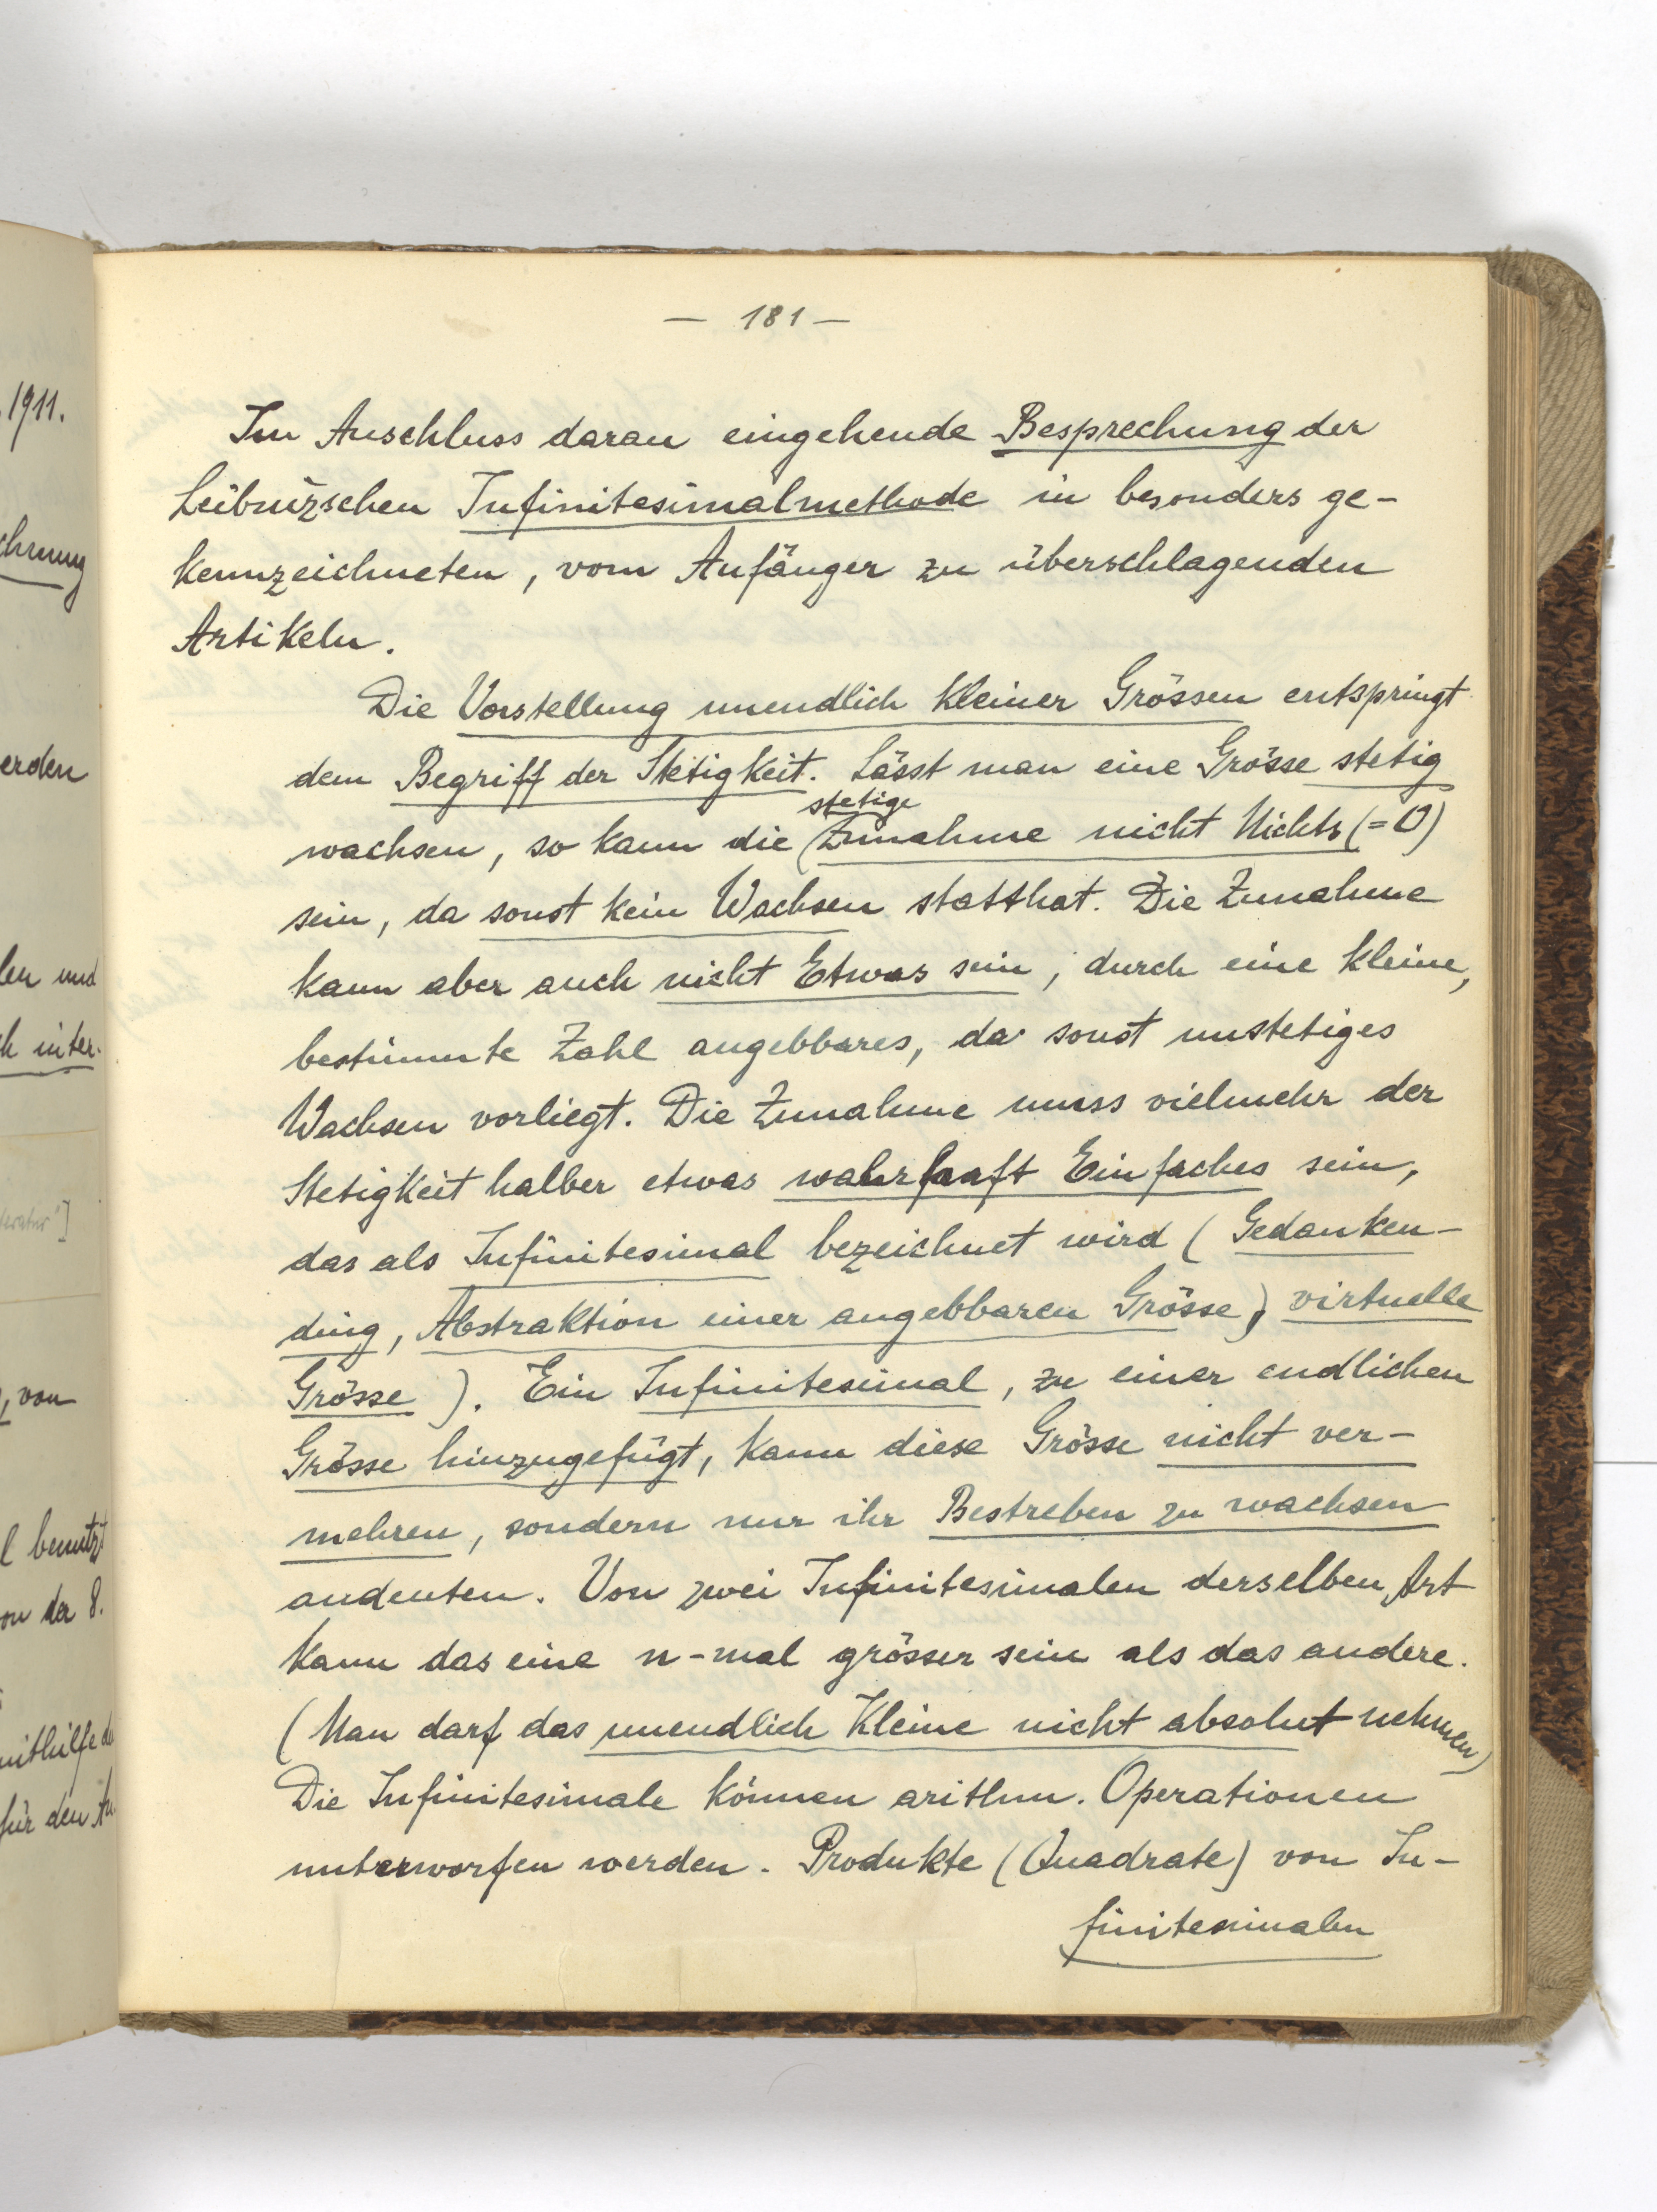 1911.
chnung
erden
len und
ch inter-
, von
l benutzt
on der 8.
mithilfe
für den
— 181 —
Im Anschluss daran eingehende Besprechung der
Leibnizschen Infinitesimalmethode in besonders ge-
kennzeichneten, vom Anfänger zu überschlagenden
Artikeln.
Die Vorstellung unendlich kleiner Grössen entspringt
dem Begriff der Stetigkeit. Lässt man eine Grösse stetig
stetige
wachsen, so kann die (Zunahme nicht Nichts (=0)
sein, da sonst kein Wachsen statthat. Die Zunahme
kann aber auch nicht Etwas sein, durch eine kleine,
bestimmte Zahl angebbares, da sonst unstetiges
Wachsen vorliegt. Die Zunahme muss vielmehr der
Stetigkeit halber etwas wahrhaft Einfaches sein,
das als Infinitesimal bezeichnet wird (Gedanken-
ding, Abstraktion einer angebbaren Grösse, virtuelle
Grösse). Ein Infinitesimal, zu einer endlichen
Grösse hinzugefügt, kann diese Grösse nicht ver-
mehren, sondern nur ihr Bestreben zu wachsen
andeuten. Von zwei Infinitesimalen derselben Art
kann das eine n-mal grösser sein als das andere.
(Man darf das unendlich Kleine nicht absolut nehmen)
Die Infinitesimale können arithm. Operationen
unterworfen werden. Produkte (Quadrate) von In-
finitesimalen